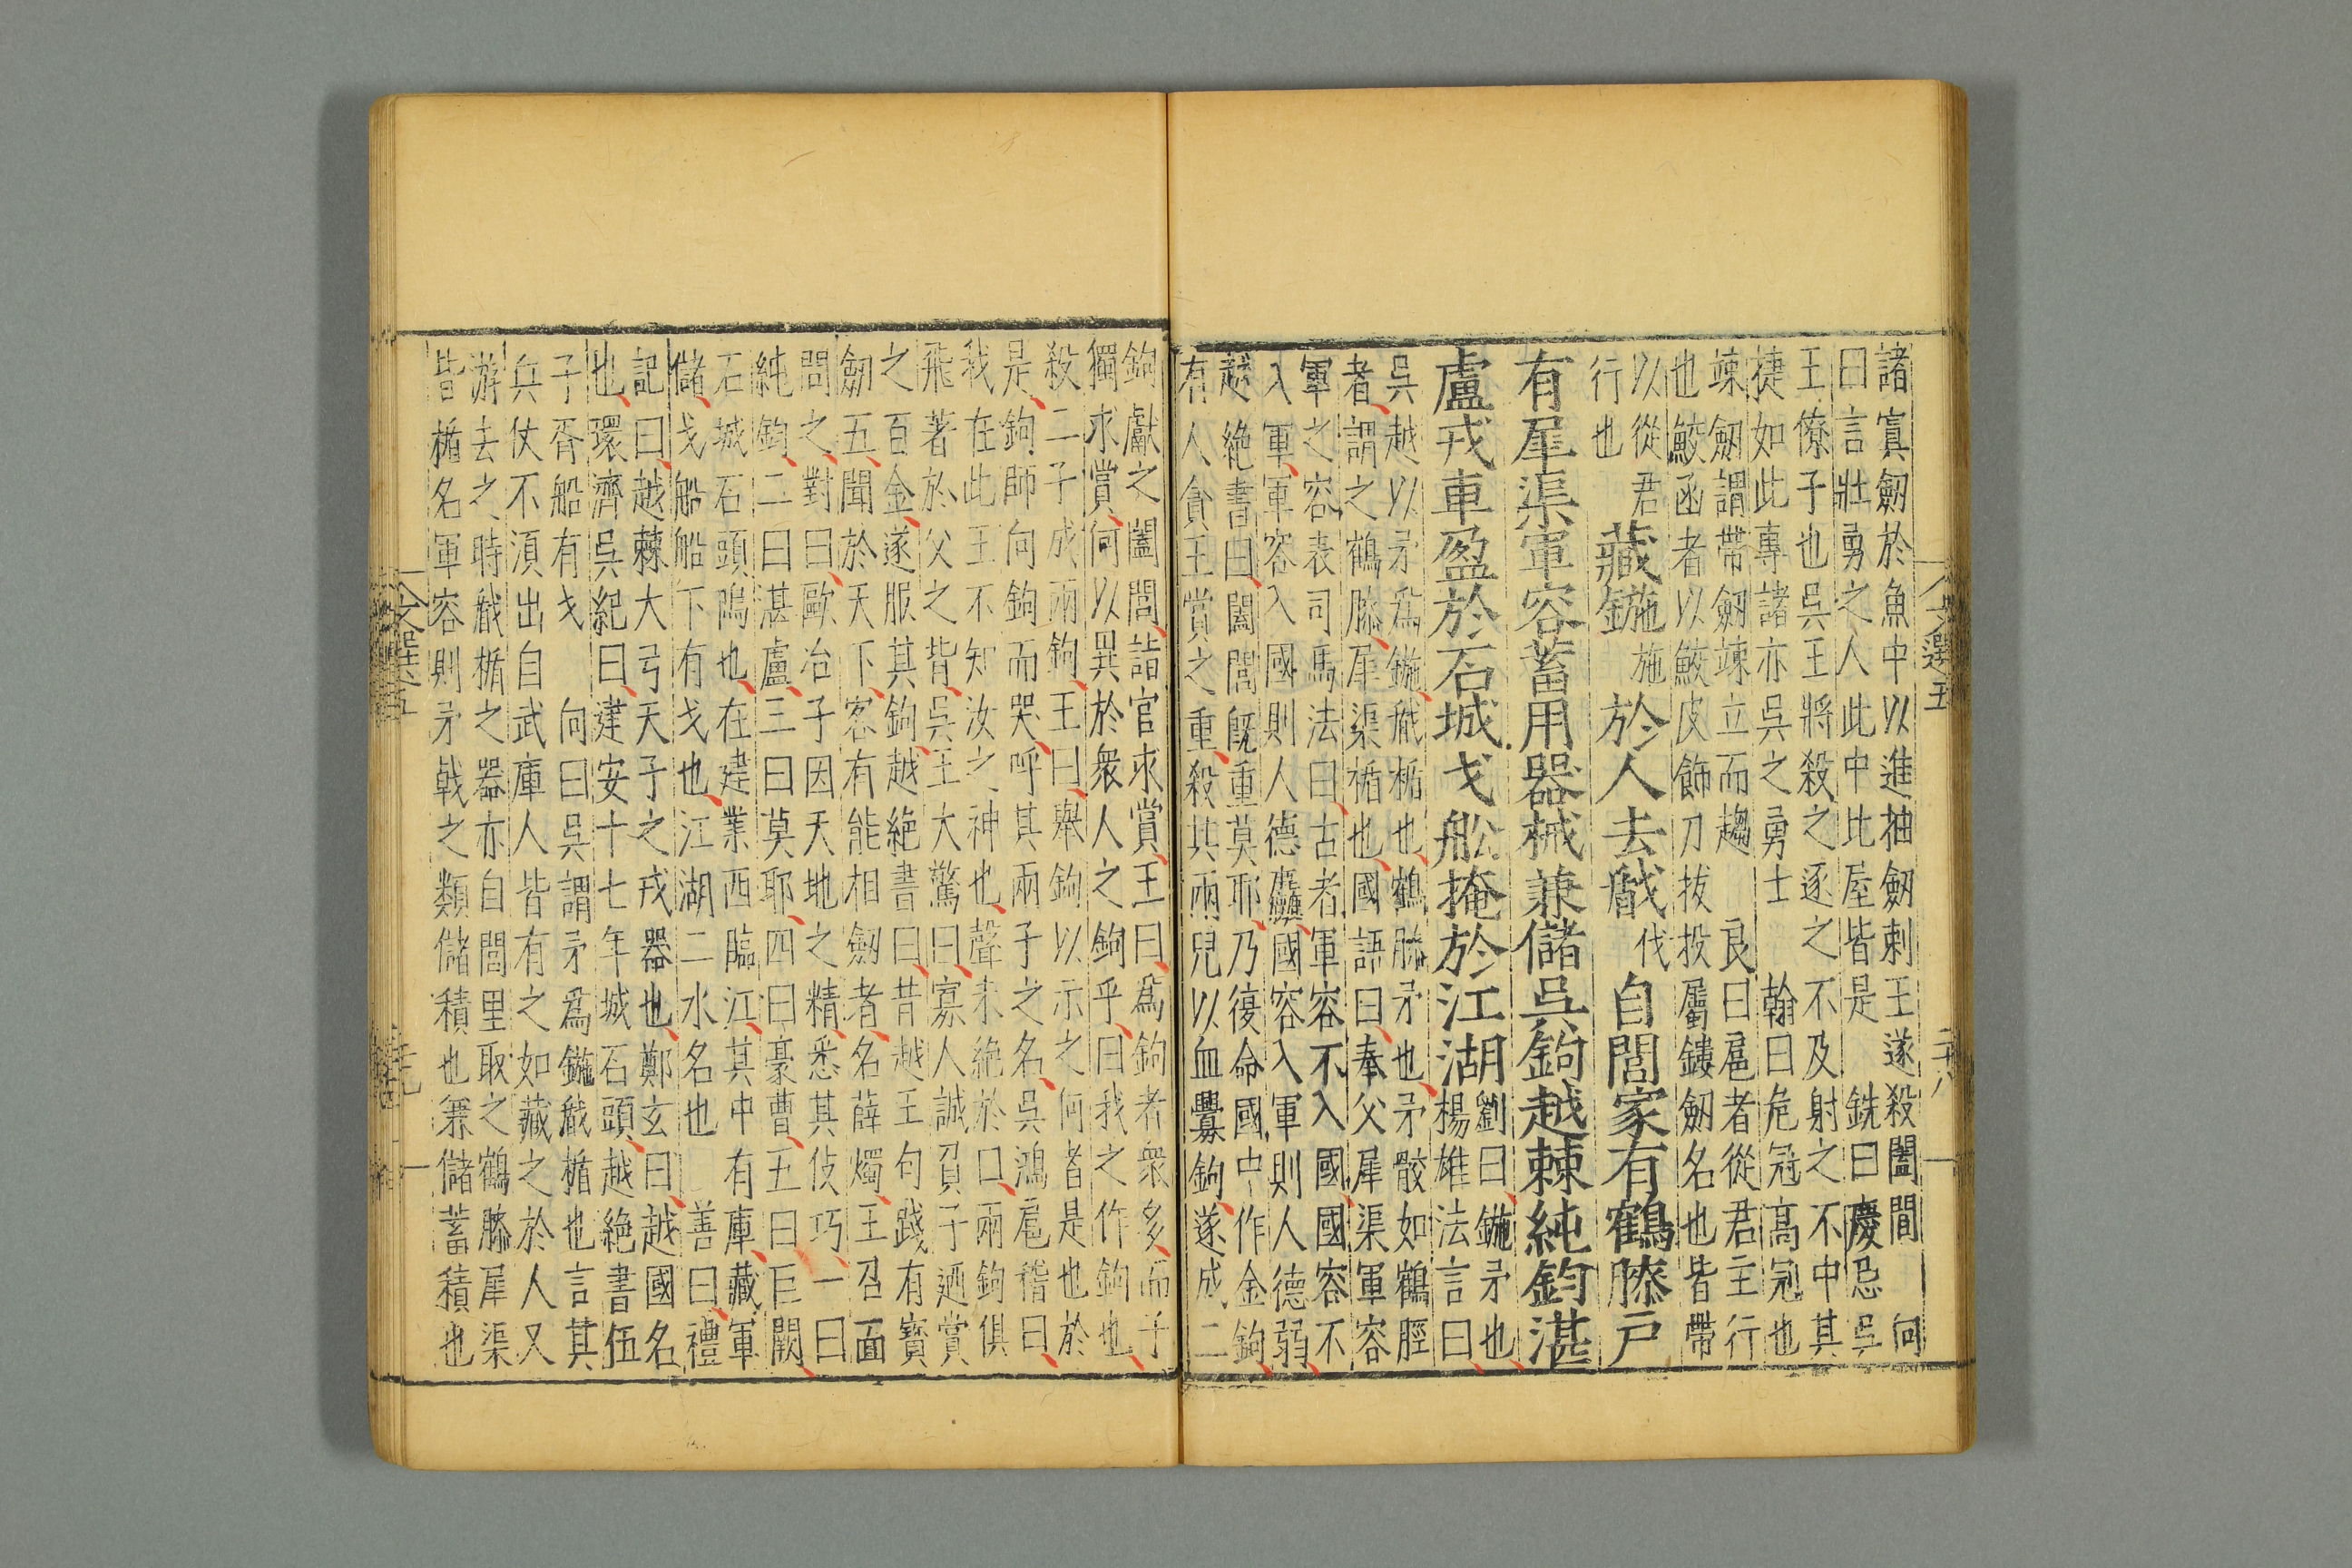 諸寘劒於魚中以進抽劒刺王遂殺闔閭　向
曰言壯勇之人此中比屋皆是　銑曰慶忌吳
王僚子也吳王將殺之逐之不及射之不中其
捷如此專諸亦吳之勇士　翰曰危冠高冠也
竦劒謂帶劒竦立而趨　良曰扈者從君主行
也鮫函者以鮫皮飾刀拔投屬鏤劒名也皆帶
以從君
行也
藏鍦施於人去瞂伐自閭家有鶴膝戸
有犀渠軍容蓄用器械兼儲吳鉤越棘純鈞湛
盧戎車盈於石城戈船掩於江湖
劉曰鍦矛也
楊雄法言曰
吳越以矛爲鍦瞂楯也鶴膝矛也矛骹如鶴脛
者謂之鶴膝犀渠楯也國語曰奉父犀渠軍容
軍之容表司馬法曰古者軍容不入國國容不
入軍軍容入國則人德麤國容入軍則人德弱
越絶書曰闔閭旣重莫耶乃復命國中作金鉤
有人貪王賞之重殺其兩兒以血釁鉤遂成二
鉤獻之闔閭詣官求賞王曰爲鉤者衆多而子
獨求賞何以異於衆人之鉤乎曰我之作鉤也
殺二子成兩鉤王曰舉鉤以示之何者是也於
是鉤師向鉤而哭呼其兩子之名吳鴻扈稽曰
我在此王不知汝之神也聲未絶於口兩鉤俱
飛著於父之背吳王大驚曰寡人誠負子迺賞
之百金遂服其鉤越絶書曰昔越王句踐有寳
劒五聞於天下客有能相劒者名薛燭王召面
問之對曰歐冶子因天地之精悉其伎巧一曰
純鈞二曰湛盧三曰莫耶四曰豪曹五曰巨闕
石城石頭隖也在建業西臨江其中有庫藏軍
儲戈船船下有戈也江湖二水名也　善曰禮
記曰越棘大弓天子之戎器也鄭玄曰越國名
也環濟吳紀曰建安十七年城石頭越絶書伍
子胥船有戈　向曰吳謂矛爲鍦瞂楯也言其
兵仗不湏出自武庫人皆有之如藏之於人又
游去之時瞂楯之器亦自閭里取之鶴膝犀渠
皆楯名軍容則矛戟之類儲積也兼儲蓄積也
文選五
二十八
文選五